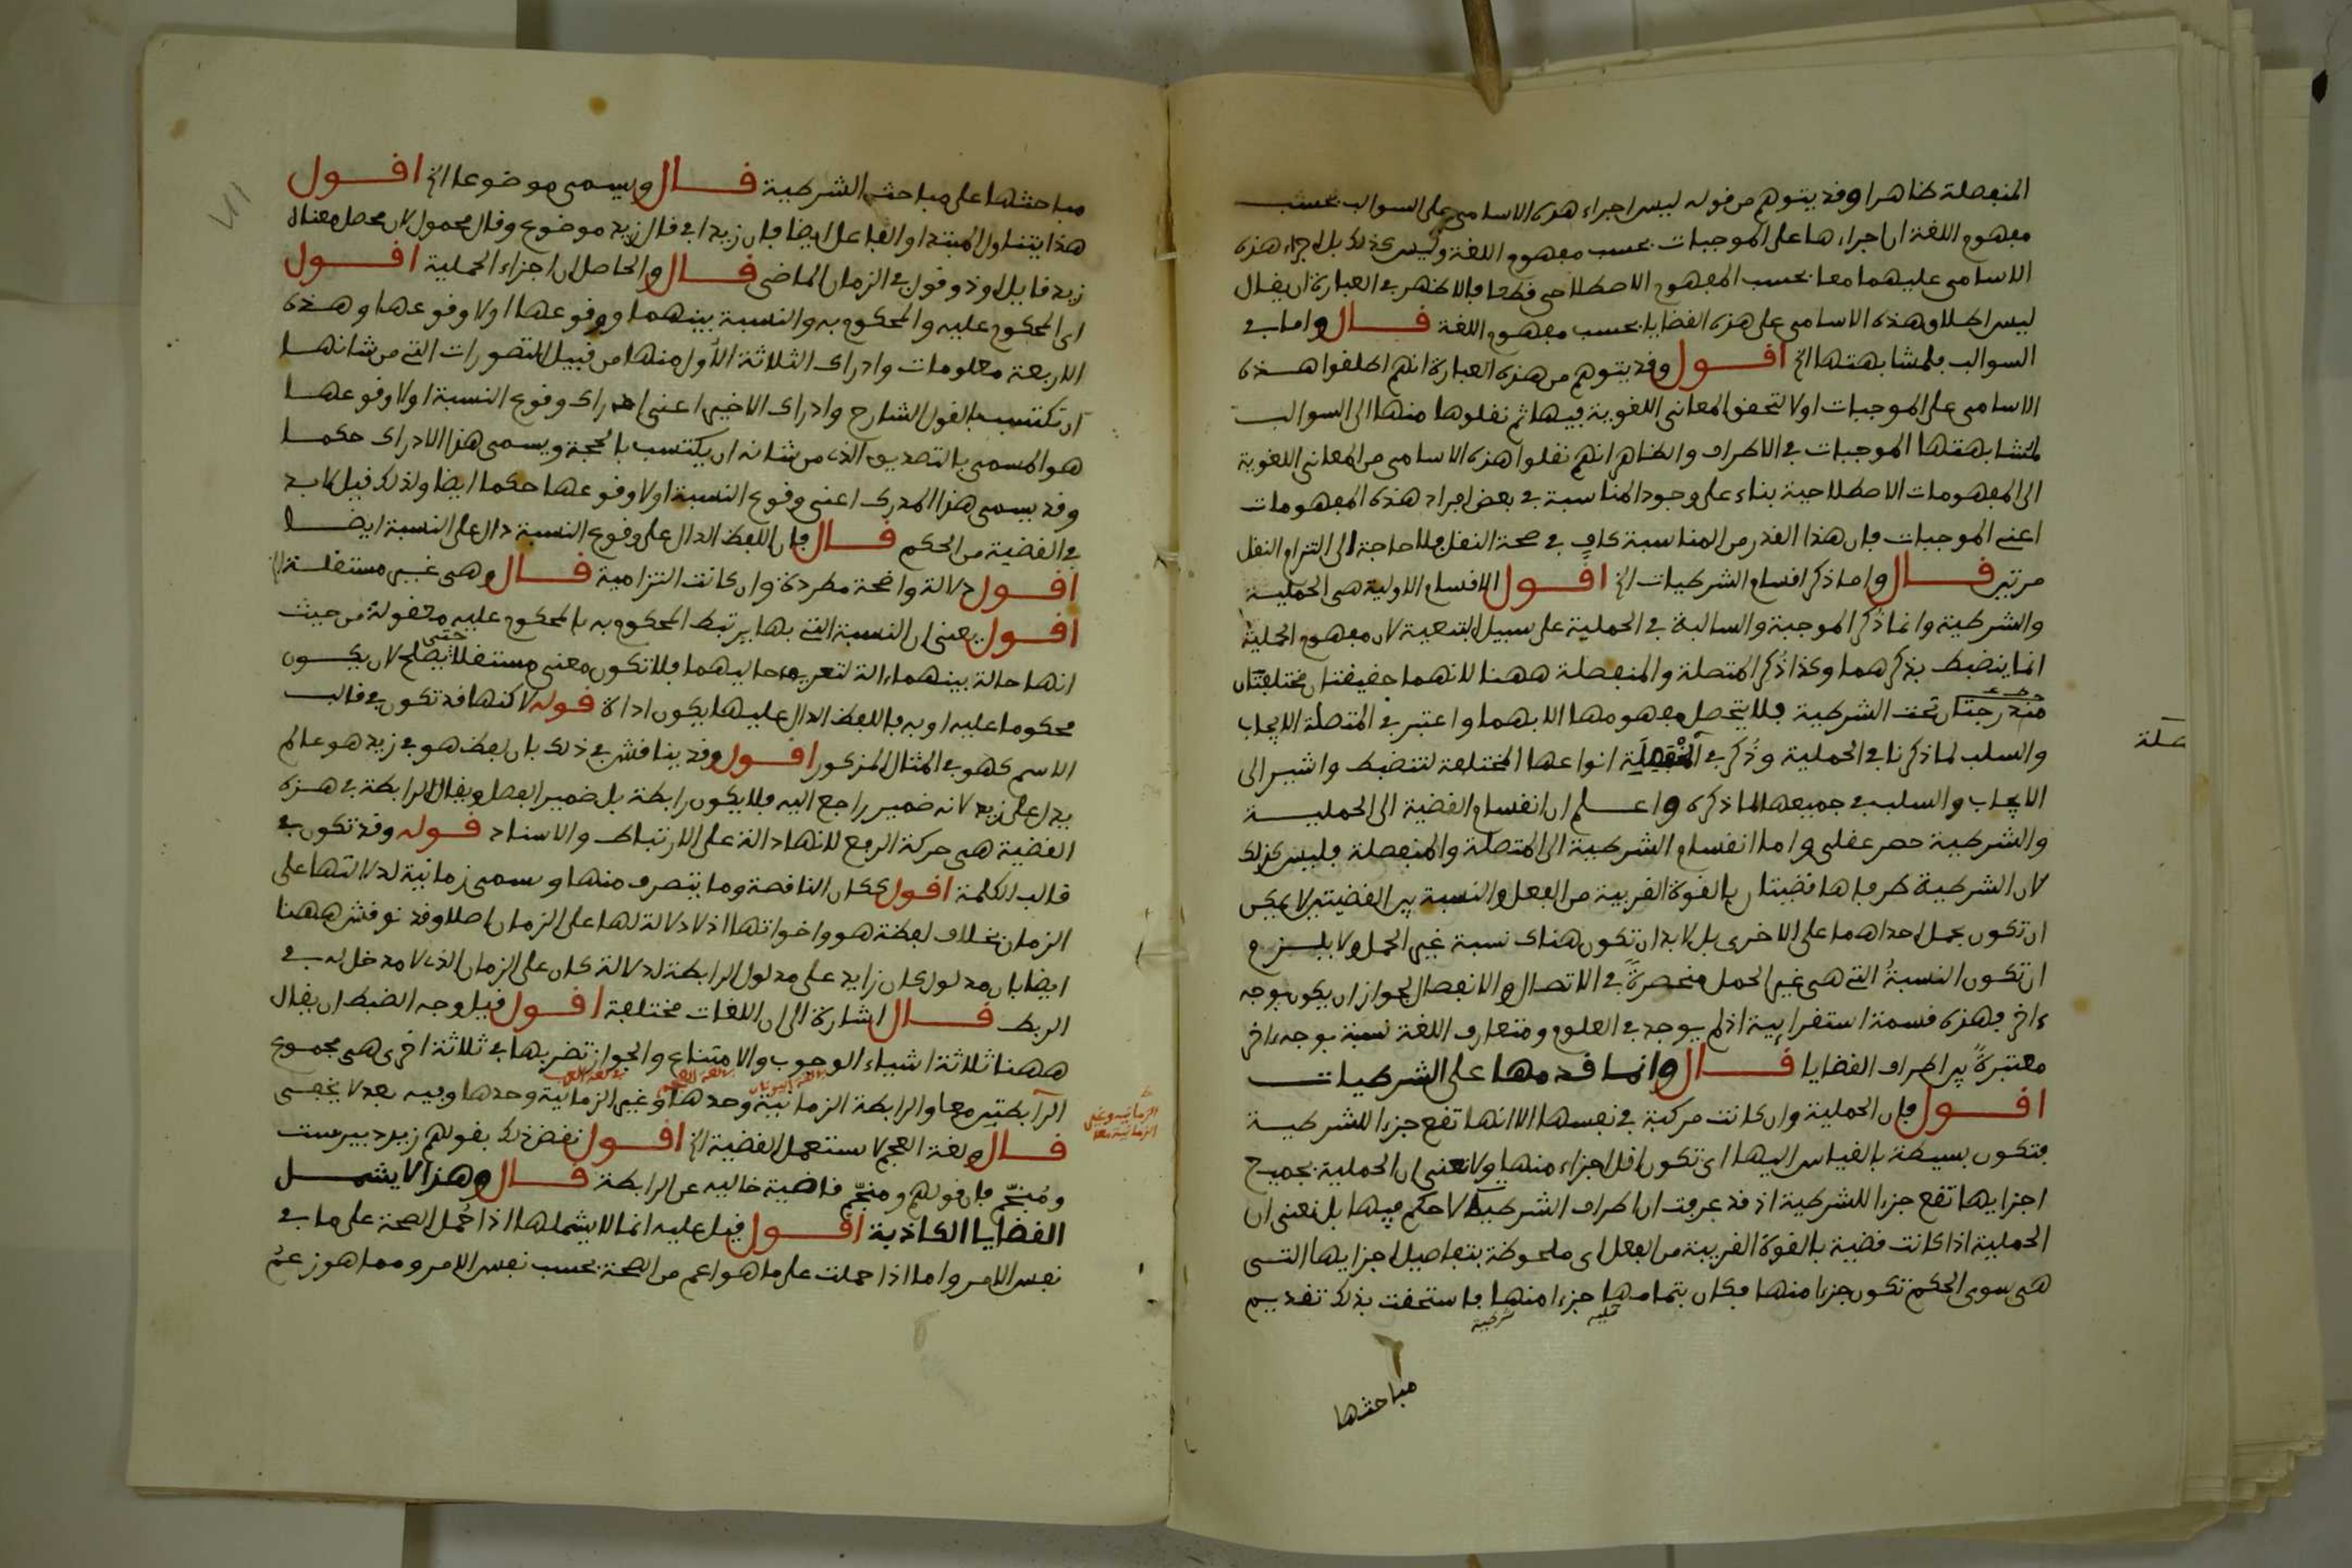 المنفصلة ظاهرا وقد يتوهم من قوله ليس اجراء هذه الاسامى على السوالب بحسب
مفهوم اللغة ان اجراءها على الموجبات بحسب مفهوم اللغة وليس كذلك بل اجراء هذه
الاسامى عليهما معا بحسب المفهوم الاصطلاحى قطعا فالاظهر فى العبارة ان يقال
ليس اطلاق هذه الاسامى على هذه القضايا بحسب مفهوم اللغة قال واما فى
السوالب فلمشابهتها الخ اقول وقد يتوهم من هذه العبارة انهم اطلقوا هذه
الاسامى على الموجبات اولا لتحقق المعانى اللغوية فيها ثم نقلوها منها الى السوالب
لمشابهتها الموجبات فى الاطراف والظاهر انهم نقلوا هذه الاسامى من المعانى اللغوية
الى المفهومات الاصطلاحية بناء على وجود المناسبة فى بعض افراد هذه المفهومات
اعنى الموجبات فان هذا القدر من المناسبة كاف فى صحة النقل فلا حاجة الى التزام النقل
مرتين قال واما ذكر اقسام الشرطيات الخ اقول الاقسام الاولية هى الحملية
والشرطية وانما ذكر الموجبة والسالبة فى الحملية على سبيل التبعية لان مفهوم الحملية
انما ينضبط بذكرهما وكذا ذُكر المتصلة والمنفصلة ههنا لانهما حقيقتان مختلفتان
مندرجتان تحت الشرطية فلا يتحصل مفهومها الا بهما واعتبر فى المتصلة الايجاب
والسلب لما ذكرنا فى الحملية وذُكر فى المنفصلة انواعها المختلفة لتنضبط واشير الى
صلة
الايجاب والسلب فى جميعها لما ذكره واعلم ان انقسام القضية الى الحملية
والشرطية حصر عقلى واما انقسام الشرطية الى المتصلة والمنفصلة فليس كذلك
لان الشرطية طرفاها قضيتان بالقوة القريبة من الفعل والنسبة بين القضيتين لا يمكن
ان تكون بحمل احداهما على الاخرى بل لا بد ان تكون هناك نسبة غير الحمل ولا يلزم
ان تكون النسبةُ التى هى غير الحمل منحصرةً فى الاتصال والانفصال لجواز ان يكون بوجه
ءاخر فهذه قسمة استقرائية اذ لم يوجد فى العلوم ومتعارف اللغة نسبة بوجه ءاخر
معتبرةً بين اطراف القضايا قال وانما قدمها على الشرطيات
اقول فان الحملية وان كانت مركبة فى نفسها الا انها تقع جزءا للشرطية
فتكون بسيطة بالقياس اليها اى تكون اقل اجزاء منها ولا نعنى ان الحملية بجميع
اجزايها تقع جزءا للشرطية اذ قد عرفت ان اطراف الشرطية لا حكم فيها بل نعنى ان
الحملية اذا كانت قضية بالقوة القريبة من الفعل اى ملحوظة بتفاصيل اجزايها التى
هى سوى الحكم تكون جزءا منها فكان بتمامها جزءا منها فاستحقت بذلك تقديم
شرطية
مباحثها
مباحثها على مباحث الشرطية قال ويسمى موضوعا الخ اقول
هذا يتناول المبتدا والفاعل ايضا فان زيدا فى قال زيد موضوع وقال محمول لان محصل معناه
زيد قايل او ذو قول فى الزمان الماضى قال والحاصل ان اجزاء الحملية اقول
اى المحكوم عليه والمحكوم به والنسبة بينهما ووقوعها او لا وقوعها وهذه
الاربعة معلومات وادراك الثلاثة الاُول منها من قبيل التصورات التى من شانها
ان تكتسب بالقول الشارح وادراك الاخير اعنى ادراك وقوع النسبة او لا وقوعها
هو المسمى بالتصديق الذى من شانه ان يكتسب بالحجة ويسمى هذا الادراك حكما
وقد يسمى هذا المدرك اعنى وقوع النسبة او لا وقوعها حكما ايضا ولذلك قيل لا بد
فى القضية من الحكم قال فان اللفظ الدال على وقوع النسبة دال على النسبة ايضا
اقول دلالة واضحة مطردة وان كانت التزامية قال وهى غير مستقلة الخ
اقول يعنى ان النسبة التى بها يرتبط المحكوم به بالمحكوم عليه معقولة من حيث
انها حالة بينهما ءالة لتعرف حاليهما فلا تكون معنى مستقلا حتى يصلح لان يكون
محكوما عليه او به فاللفظ الدال عليها يكون اداة قوله لاكنها قد تكون فى قالب
الاسم كهو فى المثال المذكور اقول وقد يناقش فى ذلك بان لفظ هو فى زيد هو عالم
يدل على زيد لانه ضمير راجع اليه فلا يكون رابطة بل ضمير الفصل ويقال الرابطة فى هذه
القضية هى حركة الرفع لانها دالة على الارتباط والاسناد قوله وقد تكون فى
قالب الكلمة اقول ككان الناقصة وما يتصرف منها وسمى زمانية لدلالتها على
الزمان بخلاف لفظة هو واخواتها اذ لا دلالة لها على الزمان اصلا وقد نوقش ههنا
ايضا بان مدلول كان زايد على مدلول الرابطة لدلالة كان على الزمان الذى لا مدخل له فى
الربط قال اشارة الى ان اللغات مختلفة اقول قيل وجه الضبط ان يقال
ههنا ثلاثة اشياء الوجوب والامتناع والجواز تضربها فى ثلاثة اخرى هى مجموع
فى لغة اليونان فى لغة العجم فى لغة العرب
الرابطتين معا والرابطة الزمانية وحدها وغير الزمانية وحدها وفيه بعد لا يخفى
الزمانية وغير
الزمانية معا
قال ولغة العجم لا تستعمل القضية الخ اقول نقض ذلك بقولهم زيد دبيرست
ومُنجّم فان قولهم ومنجّم قضية خالية عن الرابطة قال وهذا لا يشمل
القضايا الكاذبة اقول قيل عليه انما لا يشملها اذا حُمل الصحة على ما فى
نفس الامر واما اذا حملت على ما هو اعم من الصحة بحسب نفس الامر ومما هو زعم